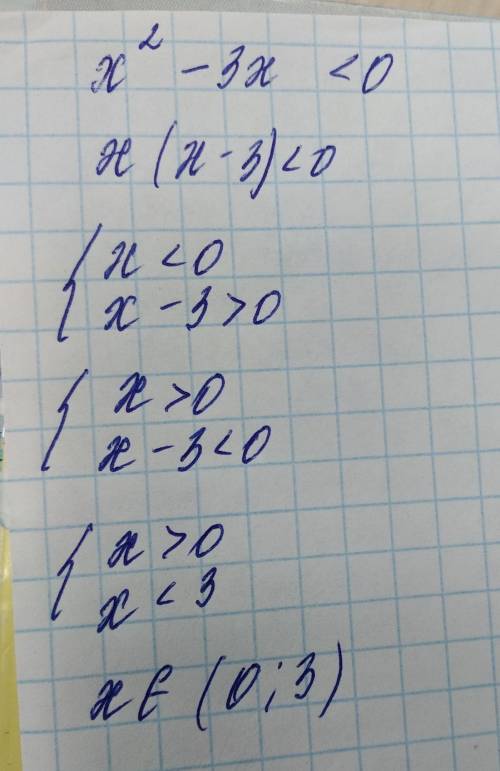 x² - 3x < 0
x(x-3)<0
{ x < 0
x - 3 > 0
{ x > 0
x - 3 < 0
{ x > 0
x < 3
x ∈ (0; 3)